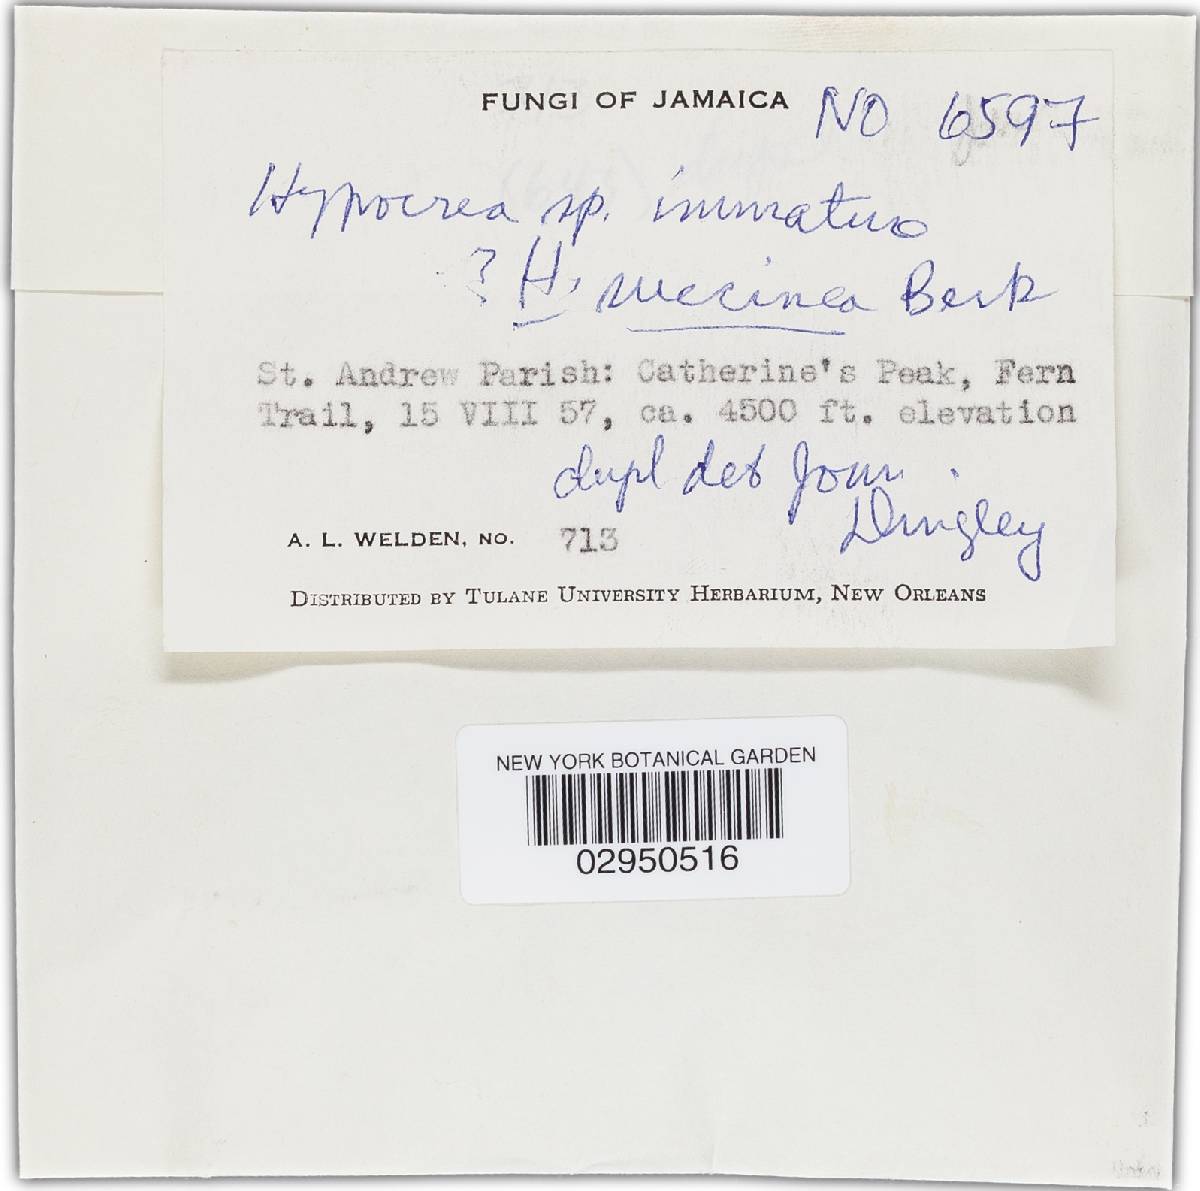 FUNGI OF JAMAICA NO 6597
Hypocrea sp. immature
? H. succinea Berk
St. Andrew Parish: Catherine's Peak, Fern
Trail, 15 VIII 57, ca. 4500 ft. elevation
dupl det Joan
Dingley
A. L. WELDEN, NO. 713
DISTRIBUTED BY TULANE UNIVERSITY HERBARIUM, NEW ORLEANS
NEW YORK BOTANICAL GARDEN
02950516